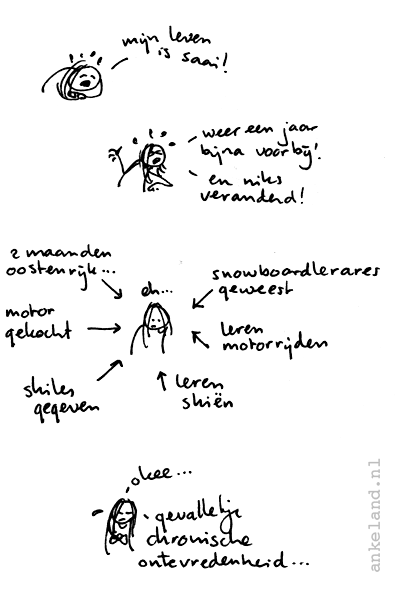 mijn leven
is saai!
weer een jaar
bijna voorbij!
en niks
veranderd!
2 maanden
oostenrijk...
eh...
snowboardlerares
geweest
motor
gekocht
leren
motorrijden
skiles
gegeven
leren
skiën
okee...
gevalletje
chronische
ontevredenheid...
ankeland.nl